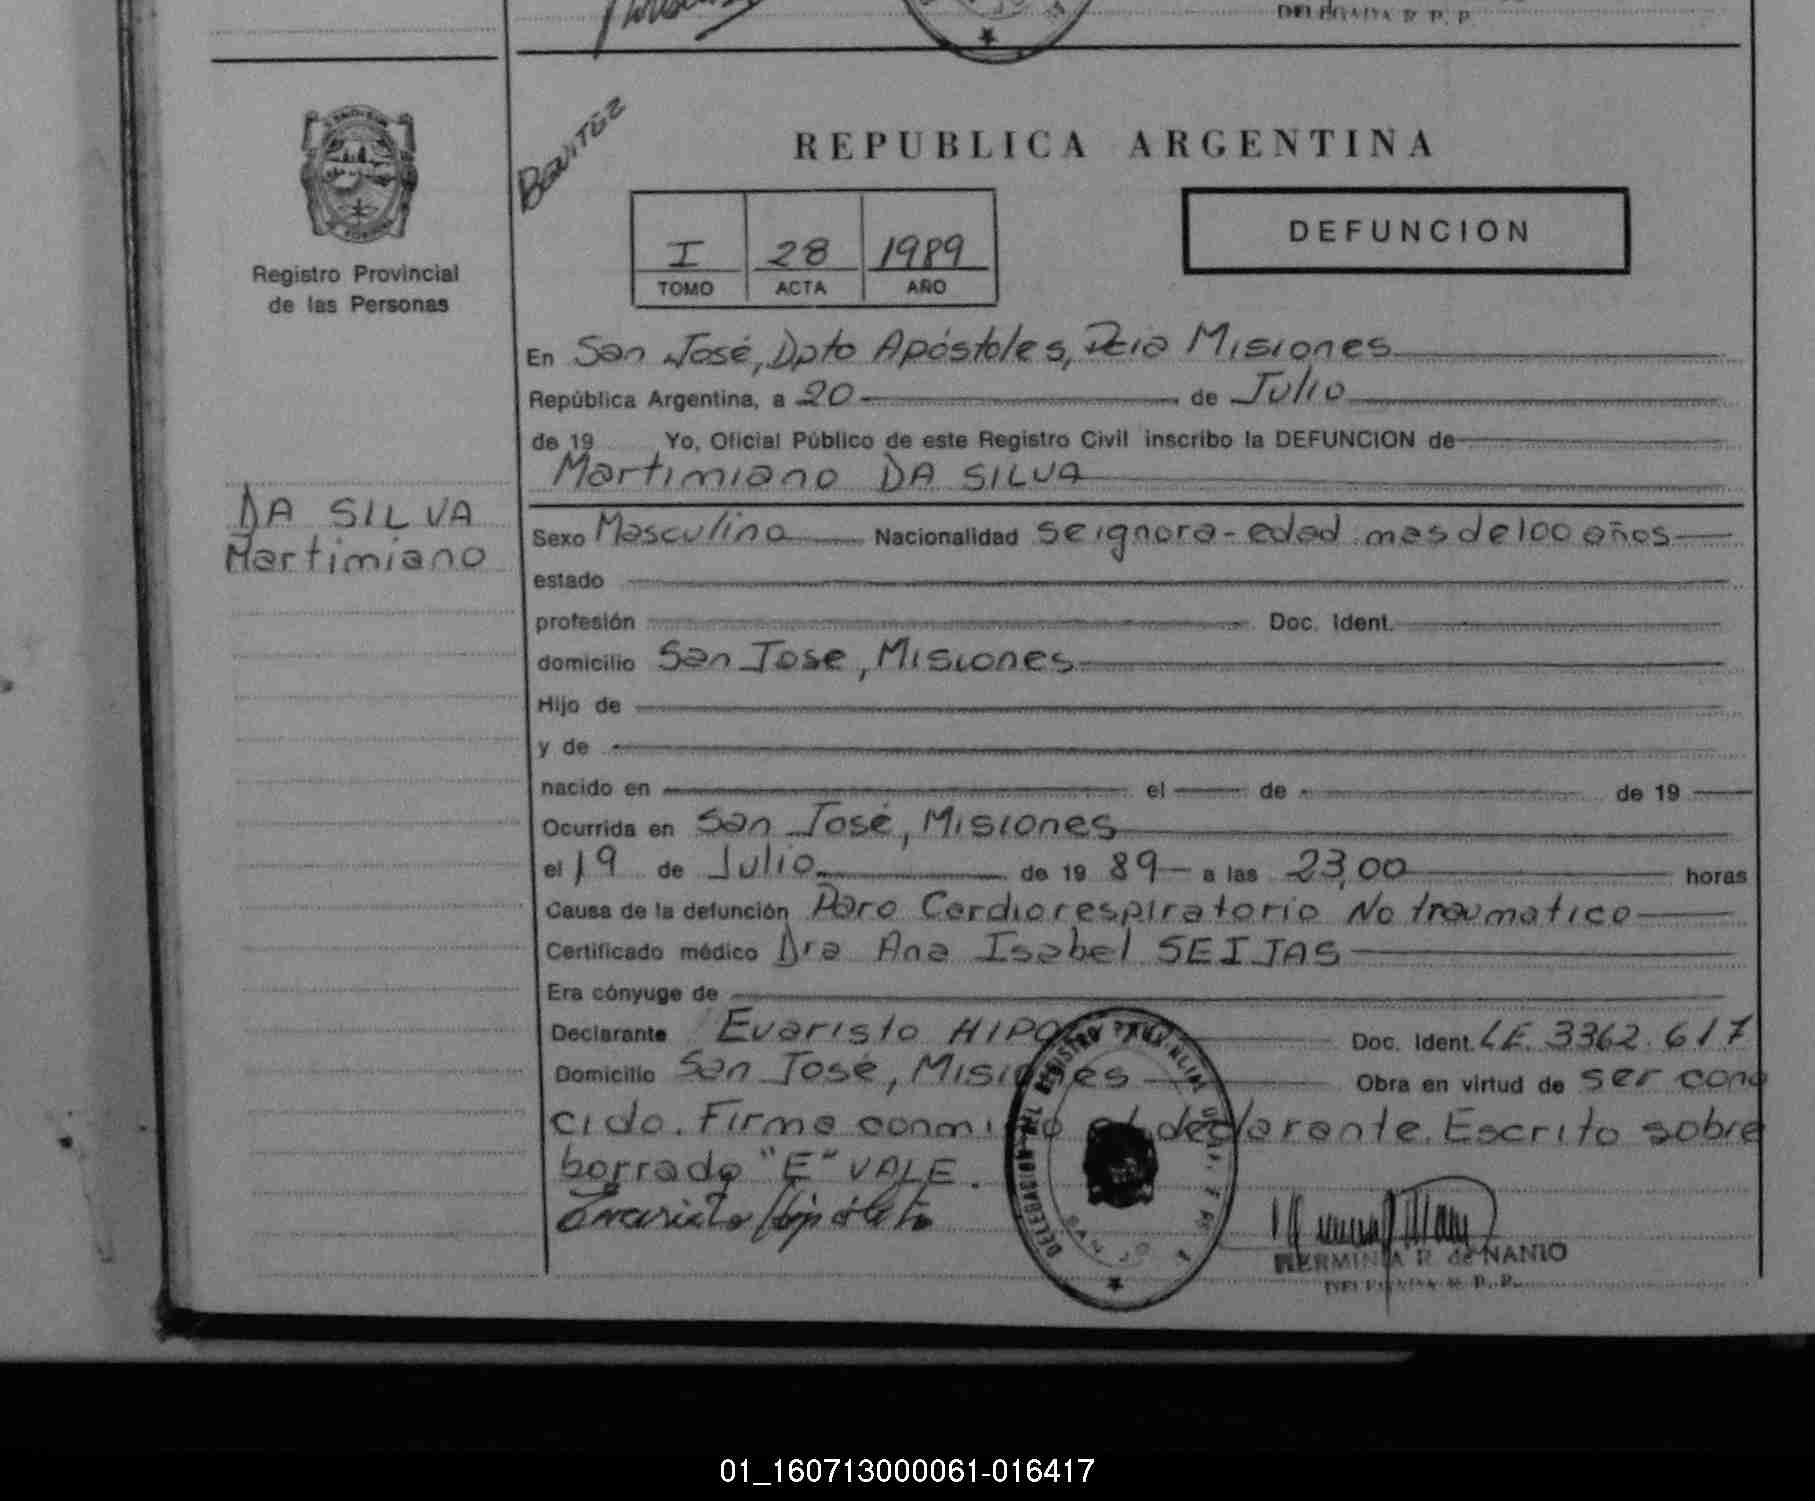 DELEGADA R. P. P.
REPUBLICA ARGENTINA
Benitez
I 28 1989
TOMO ACTA AÑO
DEFUNCION
Registro Provincial
de las Personas
En San José, Dpto Apóstoles, Pcia Misiones
República Argentina, a 20 de Julio
de 19 Yo, Oficial Público de este Registro Civil inscribo la DEFUNCION de
Martimiano DA SILVA
DA SILVA
Martimiano
Sexo Masculino Nacionalidad se ignora - edad mas de 100 años
estado
profesión Doc. Ident.
domicilio San Jose, Misiones
Hijo de
y de
nacido en el de de 19
Ocurrida en San José, Misiones
el 19 de Julio de 19 89 a las 23,00 horas
Causa de la defunción Paro Cardiorespiratorio No traumatico
Certificado médico Dra Ana Isabel SEIJAS
Era cónyuge de
Declarante Evaristo HIPO Doc. Ident. LE. 3362.617
Domicilio San José, Misiones Obra en virtud de ser cono
cido. Firma conmigo el declarante. Escrito sobre
borrado "E" VALE.
Evaristo Hipólito
DELEGACION DEL REGISTRO PROVINCIAL
SAN JO
HERMINIA R. de NANIO
DELEGADA R. P. P.
01_160713000061-016417